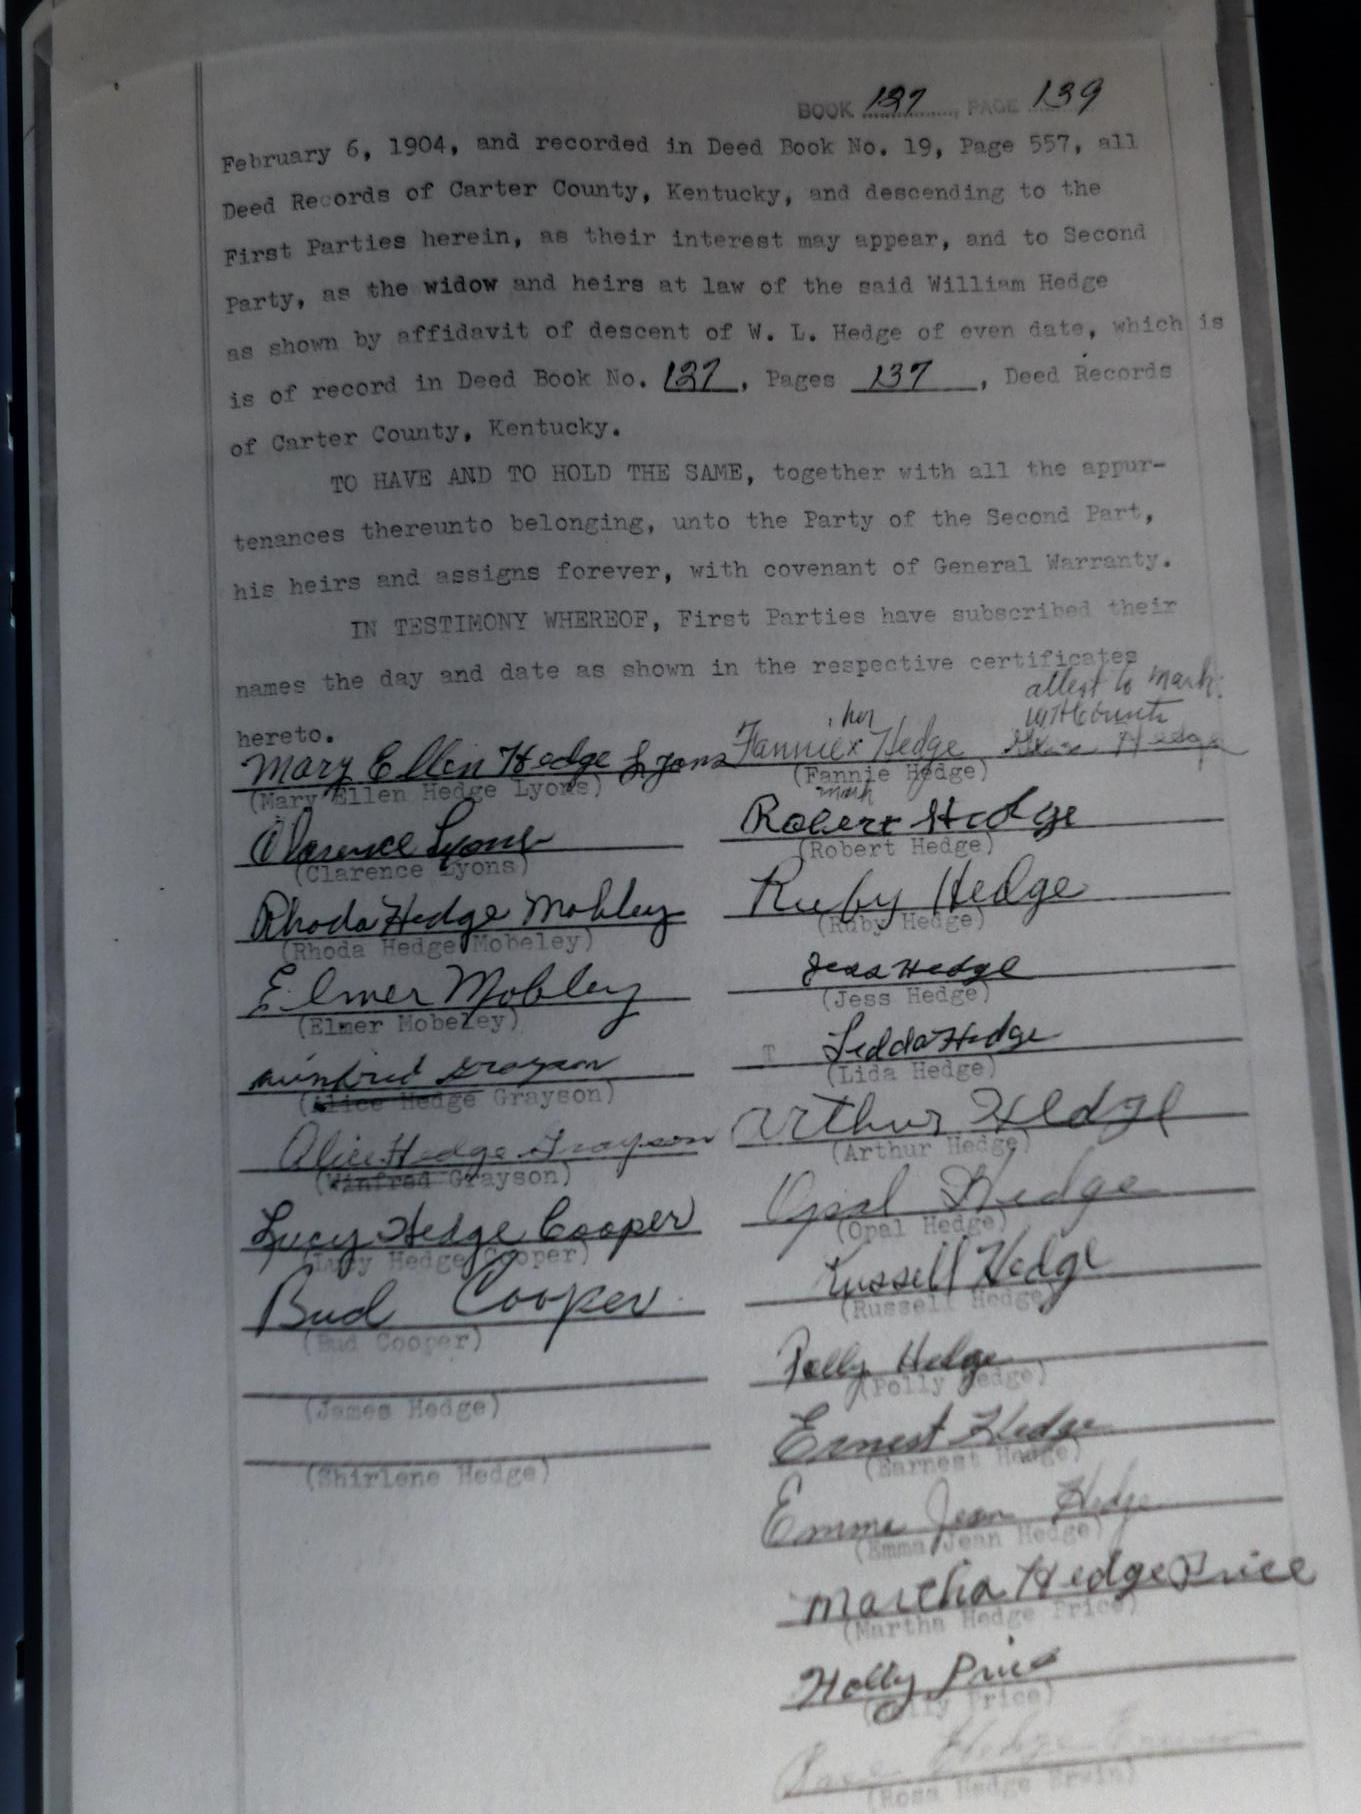 BOOK 137, PAGE 139
February 6, 1904, and recorded in Deed Book No. 19, Page 557, all
Deed Records of Carter County, Kentucky, and descending to the
First Parties herein, as their interest may appear, and to Second
Party, as the widow and heirs at law of the said William Hedge
as shown by affidavit of descent of W. L. Hedge of even date, which is
is of record in Deed Book No. 137, Pages 137, Deed Records
of Carter County, Kentucky.
TO HAVE AND TO HOLD THE SAME, together with all the appur-
tenances thereunto belonging, unto the Party of the Second Part,
his heirs and assigns forever, with covenant of General Warranty.
IN TESTIMONY WHEREOF, First Parties have subscribed their
names the day and date as shown in the respective certificates
hereto.
Mary Ellen Hedge Lyons
(Mary Ellen Hedge Lyons)
Clarence Lyons
(Clarence Lyons)
Rhoda Hedge Mobley
(Rhoda Hedge Mobeley)
Elmer Mobley
(Elmer Mobeley)
Winfred Grayson
(Alice Hedge Grayson)
Alice Hedge Grayson
(Winfred Grayson)
Lucy Hedge Cooper
(Lucy Hedge Cooper)
Bud Cooper
(Bud Cooper)
(James Hedge)
(Shirlene Hedge)
attest to mark:
her
Fannie x Hedge
Hedge
(Fannie Hedge)
mark
Robert Hedge
(Robert Hedge)
Ruby Hedge
(Ruby Hedge)
Jess Hedge
(Jess Hedge)
Ledda Hedge
(Lida Hedge)
Arthur Hedge
(Arthur Hedge)
Opal Hedge
(Opal Hedge)
Russell Hedge
(Russell Hedge)
Polly Hedge
(Polly Hedge)
Ernest Hedge
(Earnest Hedge)
Emma Jean Hedge
(Emma Jean Hedge)
Martha Hedge Price
(Martha Hedge Price)
Holly Price
(Holly Price)
Hedge
(Rosa Hedge Erwin)